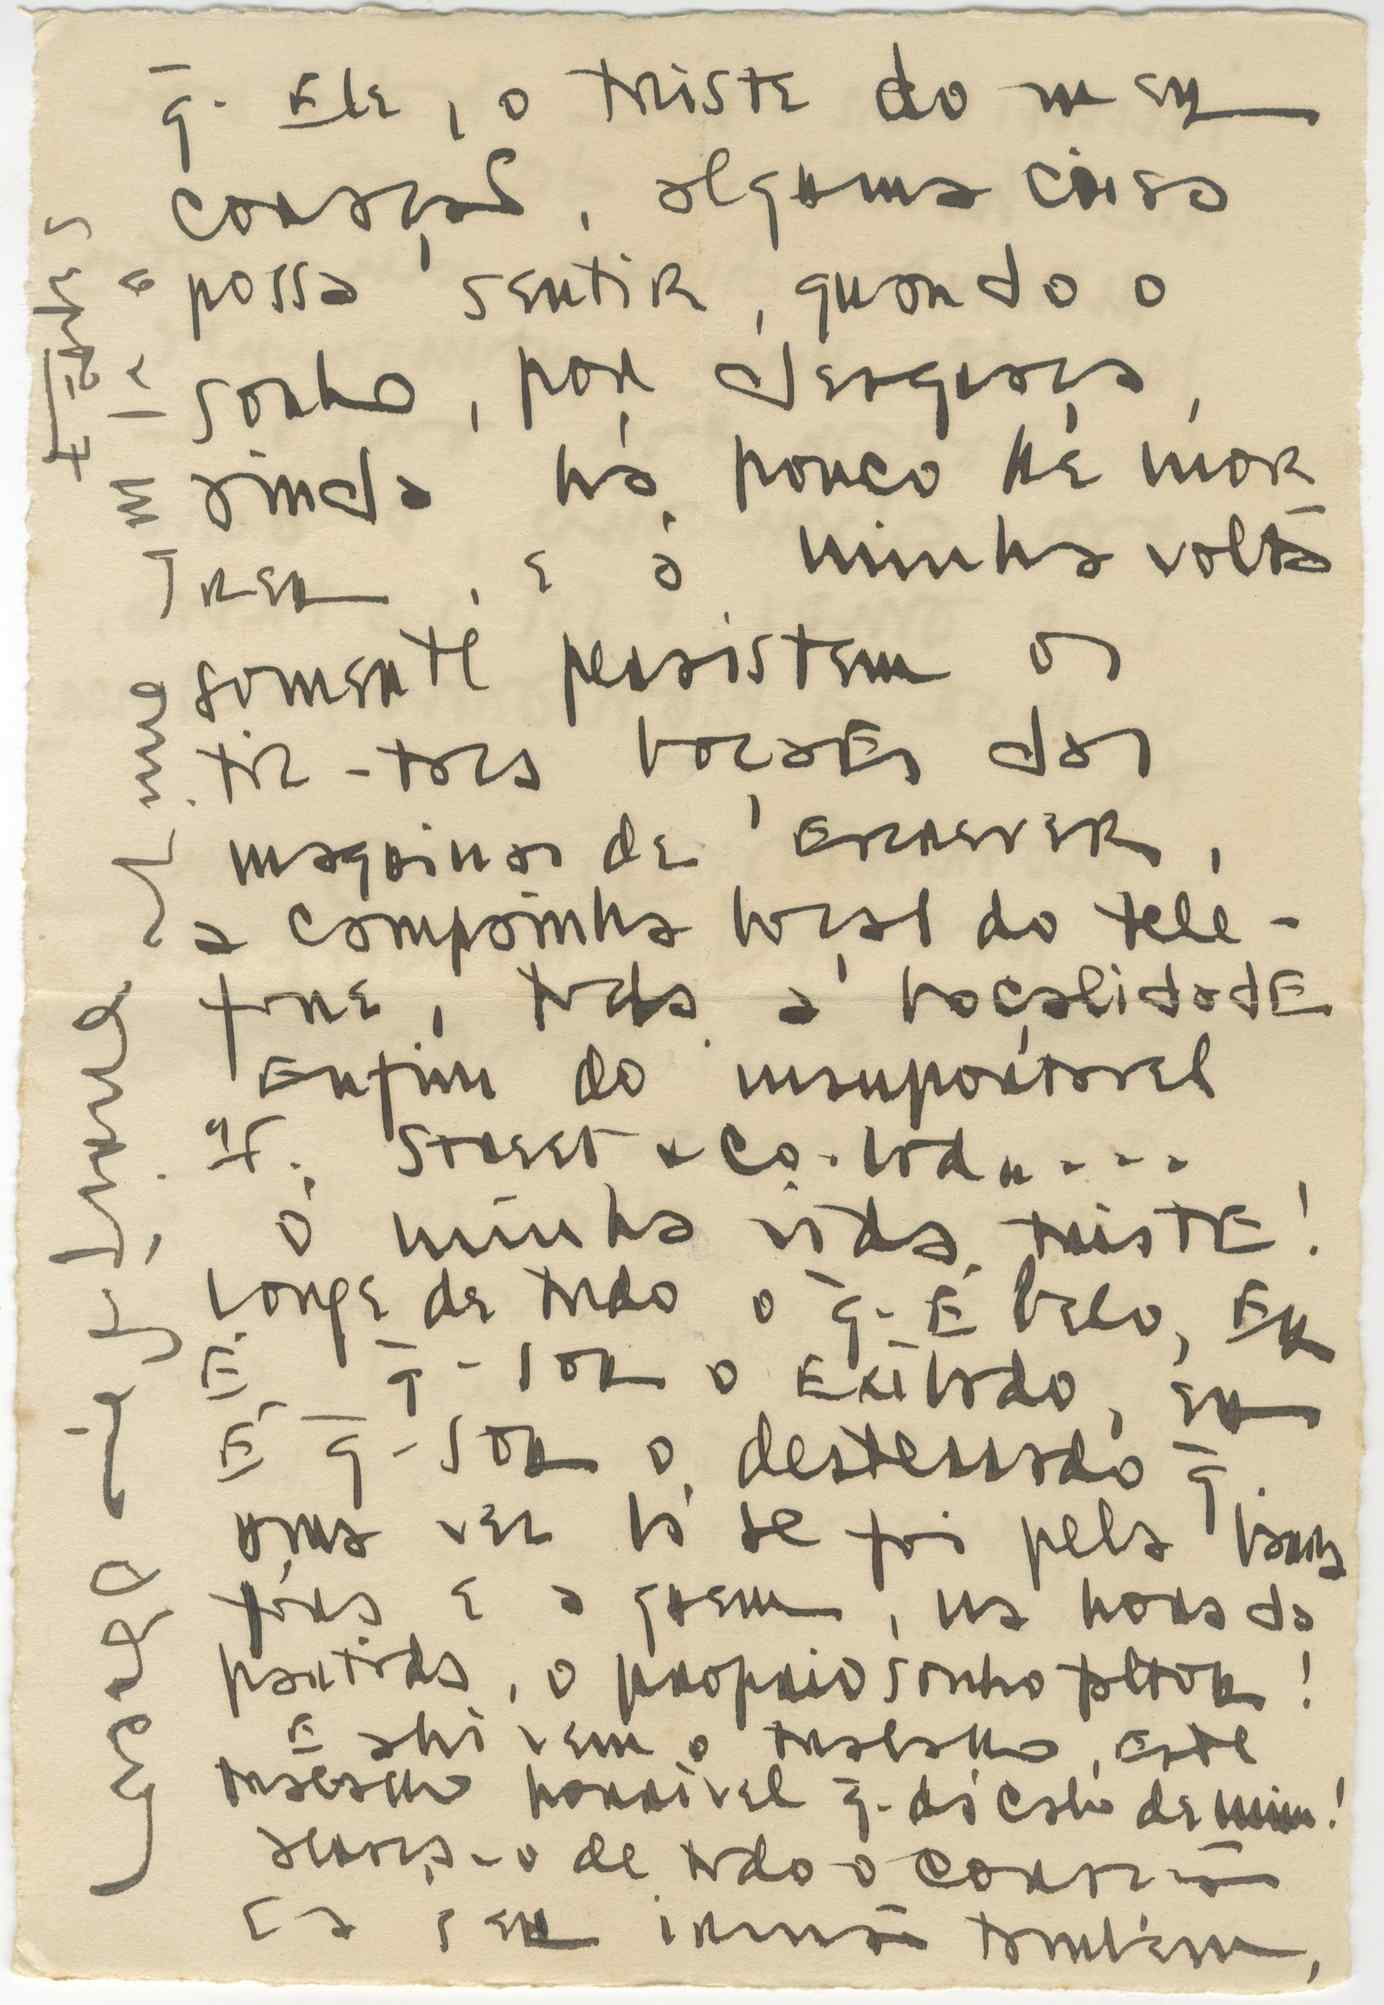 q̄. Ele, o triste do meu
coração, alguma coisa
possa sentir, quando o
sonho, por desgraça,
ainda há pouco lhe mor
reu, e á minha volta
somente persistem os
tic-tacs boçaes das
maquinas de escrever,
a campainha boçal do tele-
fone, toda a boçalidade
enfim do insuportavel
Street & Co. Ltd....
Ó minha vida triste!
Longe de tudo o q̄. é belo, eu
é q̄-sou o exilado, eu
é q̄-sou o desterrado q̄.
uma vez lá se foi pela barra
fóra e a quem, na hora da
partida, o proprio sonho faltou!
E ahi vem o trabalho, este
trabalho horrivel q̄. dá cabo de mim!
Abraça-o de todo o coração
o seu irmão tambem,